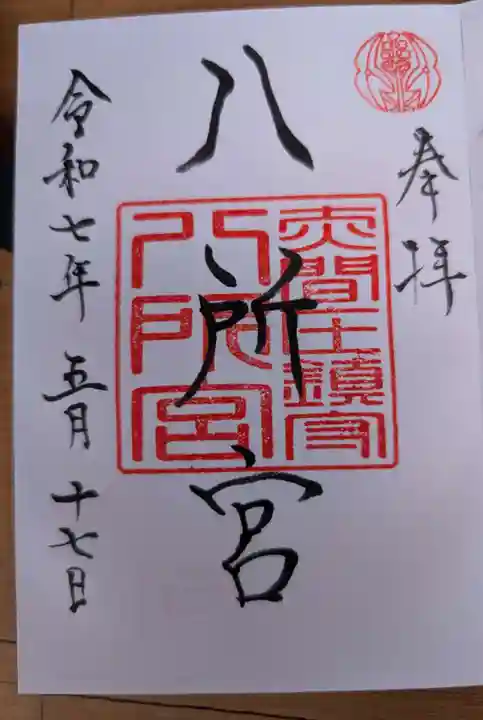 奉拝
八所宮
赤間庄鎮守
八所宮
令和七年 五月 十七日